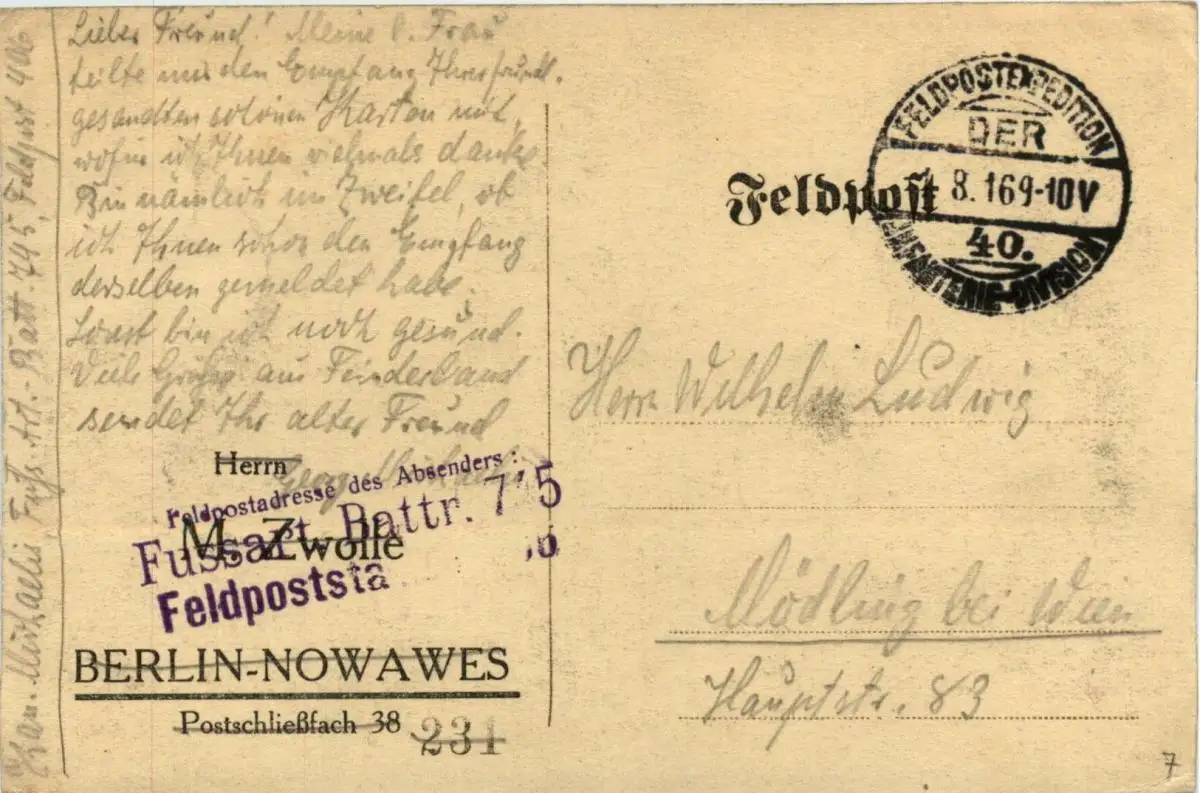 Lieber Freund! Meine l. Frau
teilte mir den Empfang Ihrer freundl.
gesandten schönen Karten mit,
wofür ich Ihnen vielmals danke.
Bin nämlich im Zweifel, ob
ich Ihnen schon den Empfang
derselben gemeldet habe.
Sonst bin ich noch gesund.
Viele Grüße aus Feindesland
sendet Ihr alter Freund
Kan. Michaelis, Fuß-Art.-Batt. 745, Feldpost 406
Herrn
Feldpostadresse des Absenders:
Fussart. Battr. 7 5
M. Zwolle
Feldpoststa
BERLIN-NOWAWES
Postschließfach 38
231
Feldpost
FELDPOSTEXPEDITION
DER
8.16 9-10V
40.
INFANTERIE-DIVISION
Herrn Wilhelm Ludwig
Mödling bei Wien
Hauptstr. 83
7